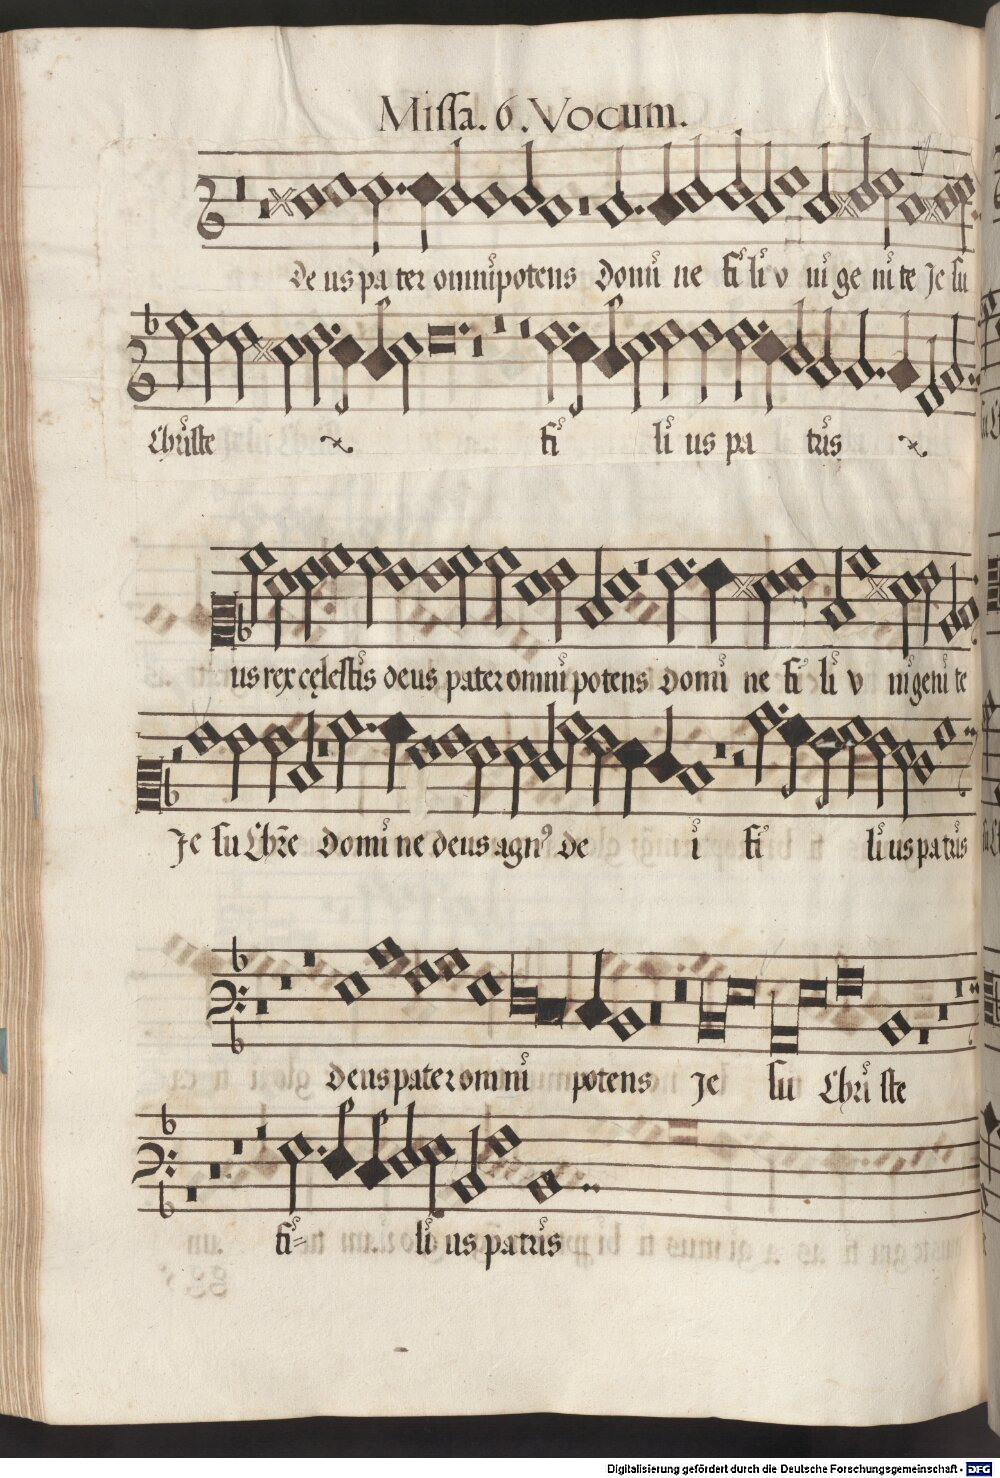 Missa. 6. Vocum.
De us pa ter omnipotens Domi ne fi li v ni ge ni te Je su
Christe fi li us pa tris
us rex cęlestis deus pater omni potens Domi ne fi li v nigeni te
Je su Chr̃e Domi ne deus agn⁹ de i fi li us pa tris
Deus pater omni potens Je su Chri ste
fi= li us patris
Digitalisierung gefördert durch die Deutsche Forschungsgemeinschaft - DFG